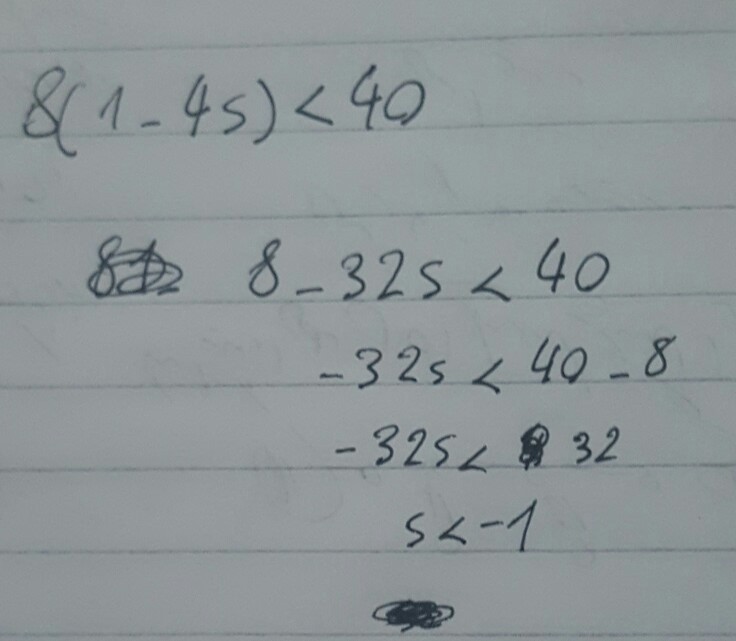 8(1-4s)<40
8-32s<40
-32s<40-8
-32s<32
s<-1